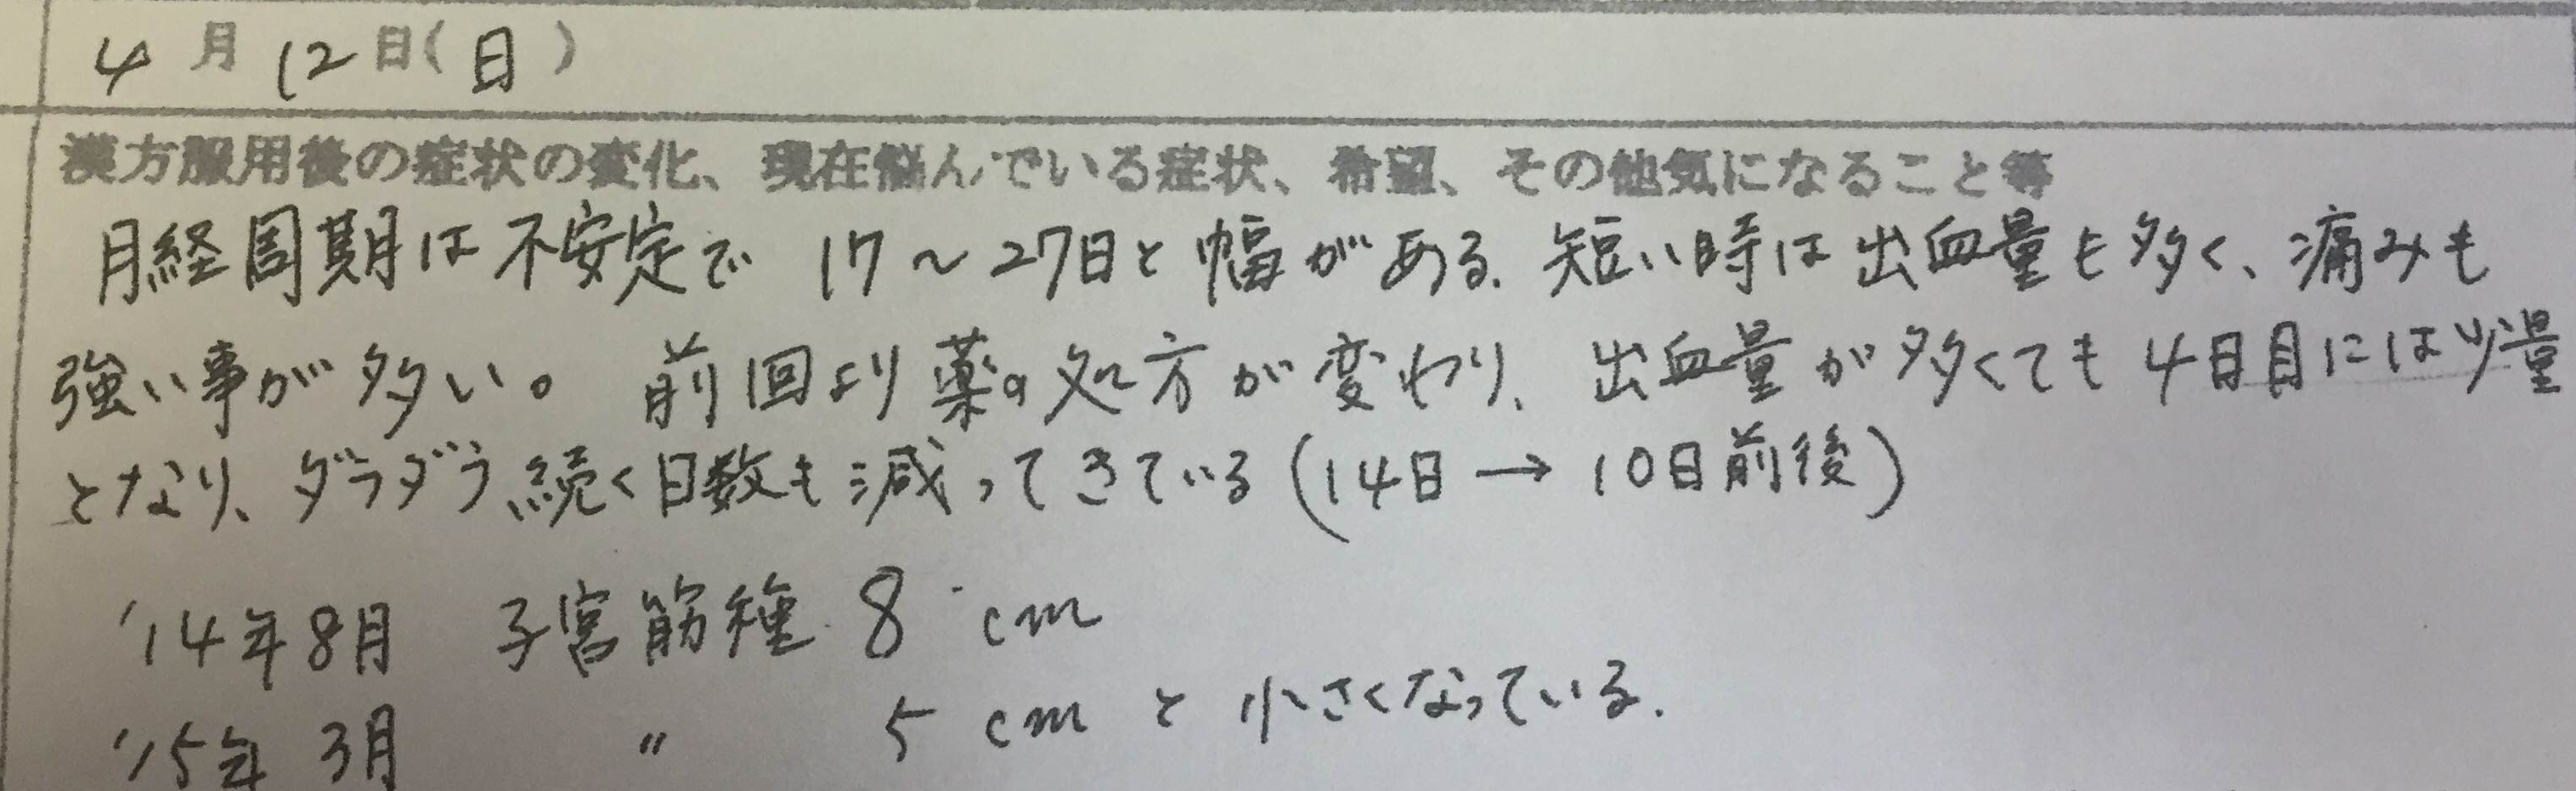 4月12日(日)
漢方服用後の症状の変化、現在悩んでいる症状、希望、その他気になること等
月経周期は不安定で 17～27日と幅がある. 短い時は出血量も多く、痛みも
強い事が多い。 前回より薬の処方が変わり、出血量が多くても4日目には少量
となり、ダラダラ続く日数も減ってきている(14日→10日前後)
'14年8月 子宮筋種 8 cm
'15年3月 〃 5 cm と小さくなっている.